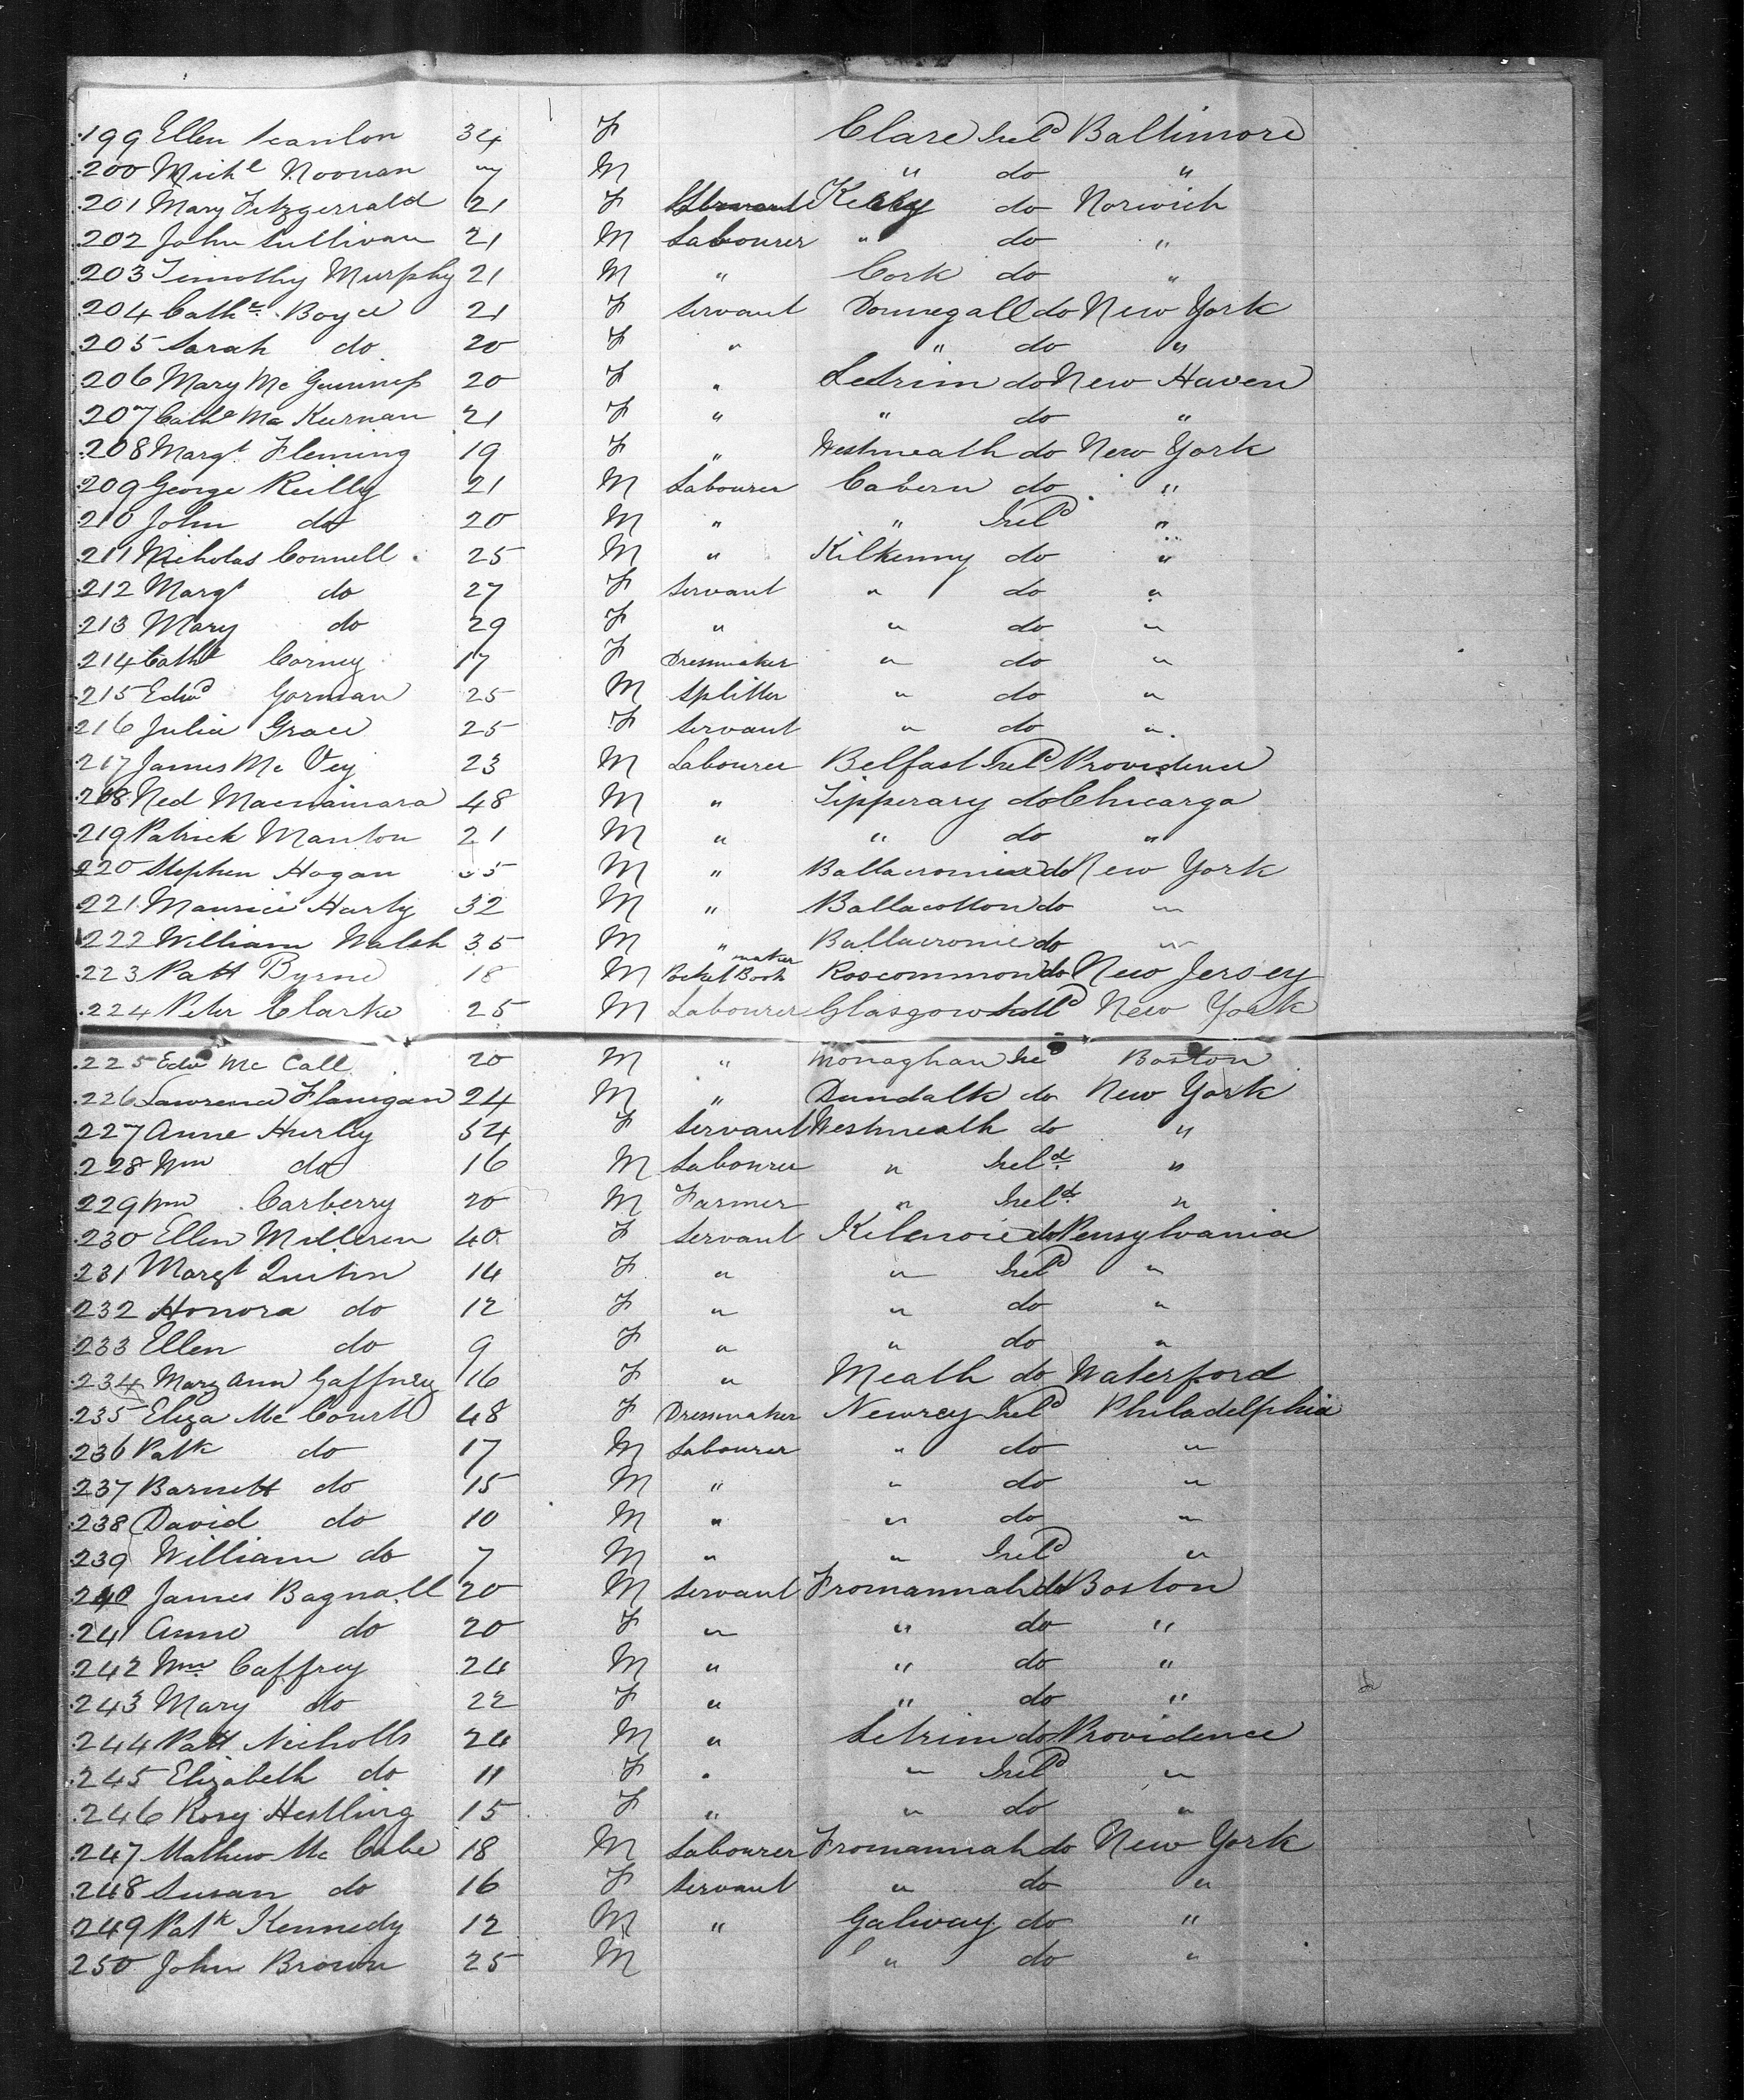 199 Ellen Scanlon 34 F Clare Irel^d Baltimore
200 Mich^l Noonan 7 M " do "
201 Mary Fitzgerrald 21 F Servant Kerry do Norwich
202 John Sullivan 21 M Labourer " do "
203 Timothy Murphy 21 M " Cork do "
204 Cath^e Boyce 21 F Servant Donnegall do New York
205 Sarah do 20 F " " do "
206 Mary Mc Guinness 20 F " Letrim do New Haven
207 Cath^e Mc Kurnan 21 F " " do "
208 Marg^t Fleming 19 F " Westmeath do New York
209 George Reilly 21 M Labourer Cabern do "
210 John do 20 M " " Irel^d "
211 Nicholas Connell 25 M " Kilkenny do "
212 Marg^t do 27 F Servant " do "
213 Mary do 29 F " " do "
214 Cath^e Corney 17 F Dressmaker " do "
215 Edw^d Gorman 25 M Splitter " do "
216 Julia Grace 25 F Servant " do "
217 James Mc Vey 23 M Labourer Belfast Irel^d Providence
218 Ned Macnamara 48 M " Tipperary do Chicarga
219 Patrick Manton 21 M " " do "
220 Stephen Hogan 35 M " Ballacronie do New York
221 Maurice Harty 32 M " Ballacotton do "
222 William Walsh 35 M " Ballacronie do "
223 Patt Byrne 18 M Pocket Book maker Roscommon do New Jersey
224 Peter Clarke 25 M Labourer Glasgow Scotl^d New York
225 Edw^d Mc Call 20 M " Monaghan Ire^d Boston
226 Lawrence Flanigan 24 M " Dundalk do New York
227 Anne Hurley 54 F Servant Westmeath do "
228 Wm do 16 M Labourer " Irel^d "
229 Wm Carberry 20 M Farmer " Irel^d "
230 Ellen Milleren 40 F Servant do Pensylvania
231 Marg^t Quinn 14 F " " Irel^d "
232 Honora do 12 F " " do "
233 Ellen do 9 F " " do "
234 Mary Ann Gaffney 16 F " Meath do Waterford
235 Eliza Mc Court 48 F Dressmaker Newrey Irel^d Philadelphia
236 Patk do 17 M Labourer " do "
237 Barnett do 15 M " " do "
238 David do 10 M " " do "
239 William do 7 M " " Irel^d "
240 James Bagnall 20 M Servant Fromannah do Boston
241 Anne do 20 F " " do "
242 Wm Caffrey 24 M " " do "
243 Mary do 22 F " " do "
244 Patt Nicholls 24 M " Letrim do Providence
245 Elizabeth do 11 F " " Irel^d "
246 Rosy Hestling 15 F " " do "
247 Mathew Mc Cabe 18 M Labourer Fromannah do New York
248 Susan do 16 F Servant " do "
249 Pat^k Kennedy 12 M " Galway do "
250 John Brown 25 M " do "